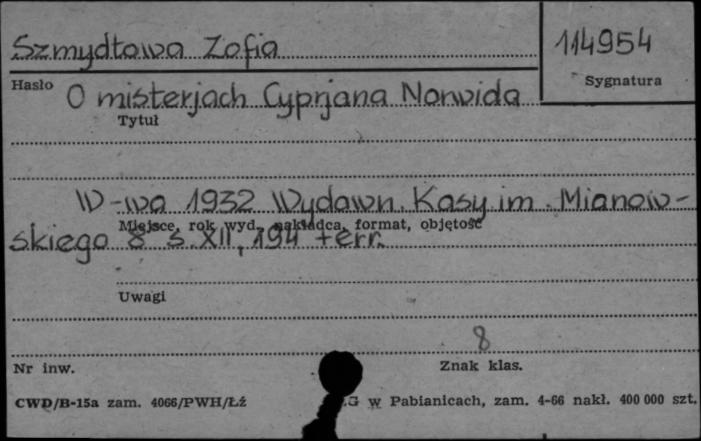 Szmydtowa Zofia
114954
Hasło
Sygnatura
O misterjach Cyprjana Norwida
Tytuł
W-wa 1932 Wydawn. Kasy im. Mianow-
Miejsce, rok wyd., nakładca, format, objętość
skiego 8 s. XII, 194 + err.
Uwagi
8
Nr inw.
Znak klas.
CWD/B-15a zam. 4066/PWH/Łź
G w Pabianicach, zam. 4-66 nakł. 400 000 szt.